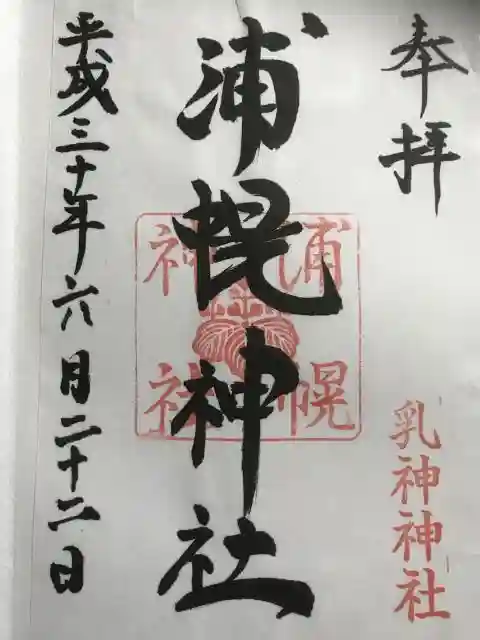 奉拝
乳神神社
浦幌神社
浦幌
神社
平成三十年六月二十二日